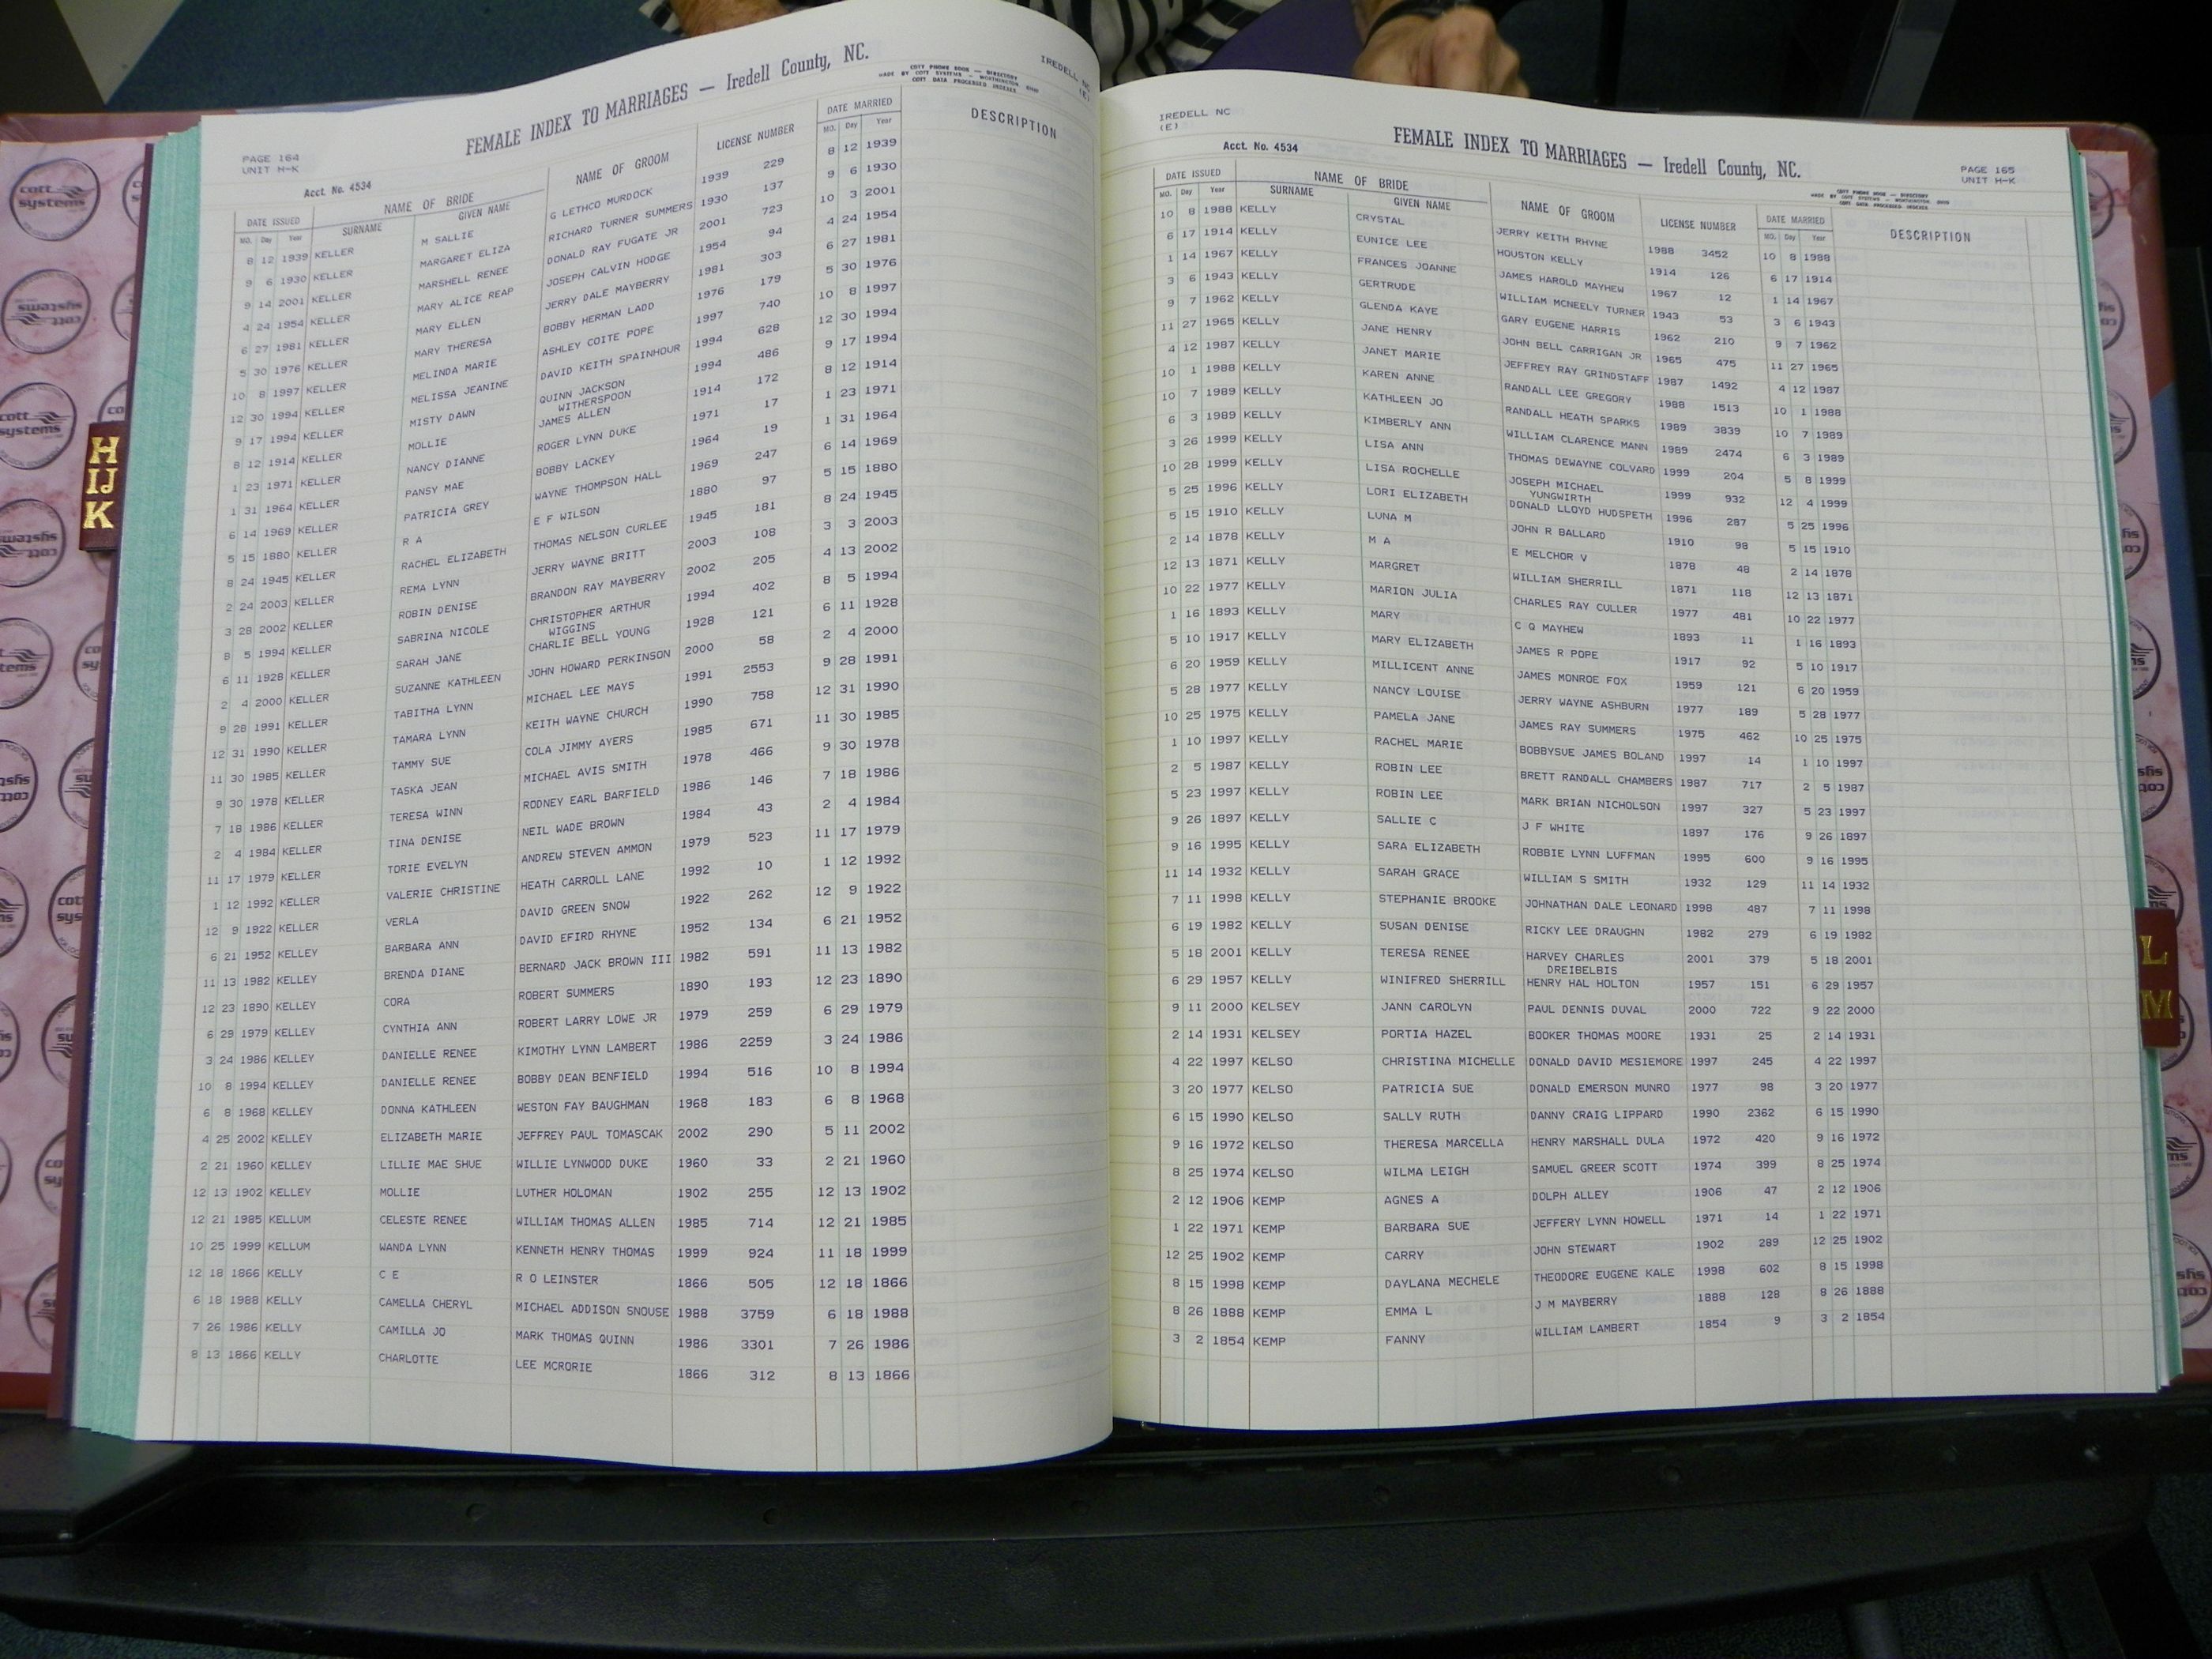 FEMALE INDEX TO MARRIAGES — Iredell County, NC.
IREDELL NC
(E)
COTT PHONE BOOK — DIRECTORY
MADE BY COTT SYSTEMS — WORTHINGTON OHIO
COTT DATA PROCESSED INDEXES
PAGE 164
UNIT H-K
Acct. No. 4534
DATE ISSUED NAME OF BRIDE NAME OF GROOM LICENSE NUMBER DATE MARRIED DESCRIPTION
MO. Day Year SURNAME GIVEN NAME MO. Day Year
8 12 1939 KELLER M SALLIE G LETHCO MURDOCK 1939 229 8 12 1939
9 6 1930 KELLER MARGARET ELIZA RICHARD TURNER SUMMERS 1930 137 9 6 1930
9 14 2001 KELLER MARSHELL RENEE DONALD RAY FUGATE JR 2001 723 10 3 2001
4 24 1954 KELLER MARY ALICE REAP JOSEPH CALVIN HODGE 1954 94 4 24 1954
6 27 1981 KELLER MARY ELLEN JERRY DALE MAYBERRY 1981 303 6 27 1981
5 30 1976 KELLER MARY THERESA BOBBY HERMAN LADD 1976 179 5 30 1976
10 8 1997 KELLER MELINDA MARIE ASHLEY COITE POPE 1997 740 10 8 1997
12 30 1994 KELLER MELISSA JEANINE DAVID KEITH SPAINHOUR 1994 628 12 30 1994
9 17 1994 KELLER MISTY DAWN QUINN JACKSON 1994 486 9 17 1994
WITHERSPOON
8 12 1914 KELLER MOLLIE JAMES ALLEN 1914 172 8 12 1914
1 23 1971 KELLER NANCY DIANNE ROGER LYNN DUKE 1971 17 1 23 1971
1 31 1964 KELLER PANSY MAE BOBBY LACKEY 1964 19 1 31 1964
6 14 1969 KELLER PATRICIA GREY WAYNE THOMPSON HALL 1969 247 6 14 1969
5 15 1880 KELLER R A E F WILSON 1880 97 5 15 1880
8 24 1945 KELLER RACHEL ELIZABETH THOMAS NELSON CURLEE 1945 181 8 24 1945
2 24 2003 KELLER REMA LYNN JERRY WAYNE BRITT 2003 108 3 3 2003
3 28 2002 KELLER ROBIN DENISE BRANDON RAY MAYBERRY 2002 205 4 13 2002
8 5 1994 KELLER SABRINA NICOLE CHRISTOPHER ARTHUR 1994 402 8 5 1994
WIGGINS
6 11 1928 KELLER SARAH JANE CHARLIE BELL YOUNG 1928 121 6 11 1928
2 4 2000 KELLER SUZANNE KATHLEEN JOHN HOWARD PERKINSON 2000 58 2 4 2000
9 28 1991 KELLER TABITHA LYNN MICHAEL LEE MAYS 1991 2553 9 28 1991
12 31 1990 KELLER TAMARA LYNN KEITH WAYNE CHURCH 1990 758 12 31 1990
11 30 1985 KELLER TAMMY SUE COLA JIMMY AYERS 1985 671 11 30 1985
9 30 1978 KELLER TASKA JEAN MICHAEL AVIS SMITH 1978 466 9 30 1978
7 18 1986 KELLER TERESA WINN RODNEY EARL BARFIELD 1986 146 7 18 1986
2 4 1984 KELLER TINA DENISE NEIL WADE BROWN 1984 43 2 4 1984
11 17 1979 KELLER TORIE EVELYN ANDREW STEVEN AMMON 1979 523 11 17 1979
1 12 1992 KELLER VALERIE CHRISTINE HEATH CARROLL LANE 1992 10 1 12 1992
12 9 1922 KELLER VERLA DAVID GREEN SNOW 1922 262 12 9 1922
6 21 1952 KELLEY BARBARA ANN DAVID EFIRD RHYNE 1952 134 6 21 1952
11 13 1982 KELLEY BRENDA DIANE BERNARD JACK BROWN III 1982 591 11 13 1982
12 23 1890 KELLEY CORA ROBERT SUMMERS 1890 193 12 23 1890
6 29 1979 KELLEY CYNTHIA ANN ROBERT LARRY LOWE JR 1979 259 6 29 1979
3 24 1986 KELLEY DANIELLE RENEE KIMOTHY LYNN LAMBERT 1986 2259 3 24 1986
10 8 1994 KELLEY DANIELLE RENEE BOBBY DEAN BENFIELD 1994 516 10 8 1994
6 8 1968 KELLEY DONNA KATHLEEN WESTON FAY BAUGHMAN 1968 183 6 8 1968
4 25 2002 KELLEY ELIZABETH MARIE JEFFREY PAUL TOMASCAK 2002 290 5 11 2002
2 21 1960 KELLEY LILLIE MAE SHUE WILLIE LYNWOOD DUKE 1960 33 2 21 1960
12 13 1902 KELLEY MOLLIE LUTHER HOLOMAN 1902 255 12 13 1902
12 21 1985 KELLUM CELESTE RENEE WILLIAM THOMAS ALLEN 1985 714 12 21 1985
10 25 1999 KELLUM WANDA LYNN KENNETH HENRY THOMAS 1999 924 11 18 1999
12 18 1866 KELLY C E R O LEINSTER 1866 505 12 18 1866
6 18 1988 KELLY CAMELLA CHERYL MICHAEL ADDISON SNOUSE 1988 3759 6 18 1988
7 26 1986 KELLY CAMILLA JO MARK THOMAS QUINN 1986 3301 7 26 1986
8 13 1866 KELLY CHARLOTTE LEE MCRORIE 1866 312 8 13 1866
IREDELL NC
(E)
Acct. No. 4534
FEMALE INDEX TO MARRIAGES — Iredell County, NC.
PAGE 165
UNIT H-K
COTT PHONE BOOK — DIRECTORY
MADE BY COTT SYSTEMS — WORTHINGTON OHIO
COTT DATA PROCESSED INDEXES
DATE ISSUED NAME OF BRIDE NAME OF GROOM LICENSE NUMBER DATE MARRIED DESCRIPTION
MO. Day Year SURNAME GIVEN NAME MO. Day Year
10 8 1988 KELLY CRYSTAL JERRY KEITH RHYNE 1988 3452 10 8 1988
6 17 1914 KELLY EUNICE LEE HOUSTON KELLY 1914 126 6 17 1914
1 14 1967 KELLY FRANCES JOANNE JAMES HAROLD MAYHEW 1967 12 1 14 1967
3 6 1943 KELLY GERTRUDE WILLIAM MCNEELY TURNER 1943 53 3 6 1943
9 7 1962 KELLY GLENDA KAYE GARY EUGENE HARRIS 1962 210 9 7 1962
11 27 1965 KELLY JANE HENRY JOHN BELL CARRIGAN JR 1965 475 11 27 1965
4 12 1987 KELLY JANET MARIE JEFFREY RAY GRINDSTAFF 1987 1492 4 12 1987
10 1 1988 KELLY KAREN ANNE RANDALL LEE GREGORY 1988 1513 10 1 1988
10 7 1989 KELLY KATHLEEN JO RANDALL HEATH SPARKS 1989 3839 10 7 1989
6 3 1989 KELLY KIMBERLY ANN WILLIAM CLARENCE MANN 1989 2474 6 3 1989
3 26 1999 KELLY LISA ANN THOMAS DEWAYNE COLVARD 1999 204 5 8 1999
10 28 1999 KELLY LISA ROCHELLE JOSEPH MICHAEL 1999 932 12 4 1999
YUNGWIRTH
5 25 1996 KELLY LORI ELIZABETH DONALD LLOYD HUDSPETH 1996 287 5 25 1996
5 15 1910 KELLY LUNA M JOHN R BALLARD 1910 98 5 15 1910
2 14 1878 KELLY M A E MELCHOR V 1878 48 2 14 1878
12 13 1871 KELLY MARGRET WILLIAM SHERRILL 1871 118 12 13 1871
10 22 1977 KELLY MARION JULIA CHARLES RAY CULLER 1977 481 10 22 1977
1 16 1893 KELLY MARY C Q MAYHEW 1893 11 1 16 1893
5 10 1917 KELLY MARY ELIZABETH JAMES R POPE 1917 92 5 10 1917
6 20 1959 KELLY MILLICENT ANNE JAMES MONROE FOX 1959 121 6 20 1959
5 28 1977 KELLY NANCY LOUISE JERRY WAYNE ASHBURN 1977 189 5 28 1977
10 25 1975 KELLY PAMELA JANE JAMES RAY SUMMERS 1975 462 10 25 1975
1 10 1997 KELLY RACHEL MARIE BOBBYSUE JAMES BOLAND 1997 14 1 10 1997
2 5 1987 KELLY ROBIN LEE BRETT RANDALL CHAMBERS 1987 717 2 5 1987
5 23 1997 KELLY ROBIN LEE MARK BRIAN NICHOLSON 1997 327 5 23 1997
9 26 1897 KELLY SALLIE C J F WHITE 1897 176 9 26 1897
9 16 1995 KELLY SARA ELIZABETH ROBBIE LYNN LUFFMAN 1995 600 9 16 1995
11 14 1932 KELLY SARAH GRACE WILLIAM S SMITH 1932 129 11 14 1932
7 11 1998 KELLY STEPHANIE BROOKE JOHNATHAN DALE LEONARD 1998 487 7 11 1998
6 19 1982 KELLY SUSAN DENISE RICKY LEE DRAUGHN 1982 279 6 19 1982
5 18 2001 KELLY TERESA RENEE HARVEY CHARLES 2001 379 5 18 2001
DREIBELBIS
6 29 1957 KELLY WINIFRED SHERRILL HENRY HAL HOLTON 1957 151 6 29 1957
9 11 2000 KELSEY JANN CAROLYN PAUL DENNIS DUVAL 2000 722 9 22 2000
2 14 1931 KELSEY PORTIA HAZEL BOOKER THOMAS MOORE 1931 25 2 14 1931
4 22 1997 KELSO CHRISTINA MICHELLE DONALD DAVID MESIEMORE 1997 245 4 22 1997
3 20 1977 KELSO PATRICIA SUE DONALD EMERSON MUNRO 1977 98 3 20 1977
6 15 1990 KELSO SALLY RUTH DANNY CRAIG LIPPARD 1990 2362 6 15 1990
9 16 1972 KELSO THERESA MARCELLA HENRY MARSHALL DULA 1972 420 9 16 1972
8 25 1974 KELSO WILMA LEIGH SAMUEL GREER SCOTT 1974 399 8 25 1974
2 12 1906 KEMP AGNES A DOLPH ALLEY 1906 47 2 12 1906
1 22 1971 KEMP BARBARA SUE JEFFERY LYNN HOWELL 1971 14 1 22 1971
12 25 1902 KEMP CARRY JOHN STEWART 1902 289 12 25 1902
8 15 1998 KEMP DAYLANA MECHELE THEODORE EUGENE KALE 1998 602 8 15 1998
8 26 1888 KEMP EMMA L J M MAYBERRY 1888 128 8 26 1888
3 2 1854 KEMP FANNY WILLIAM LAMBERT 1854 9 3 2 1854
H
IJ
K
L
M
cott
systems